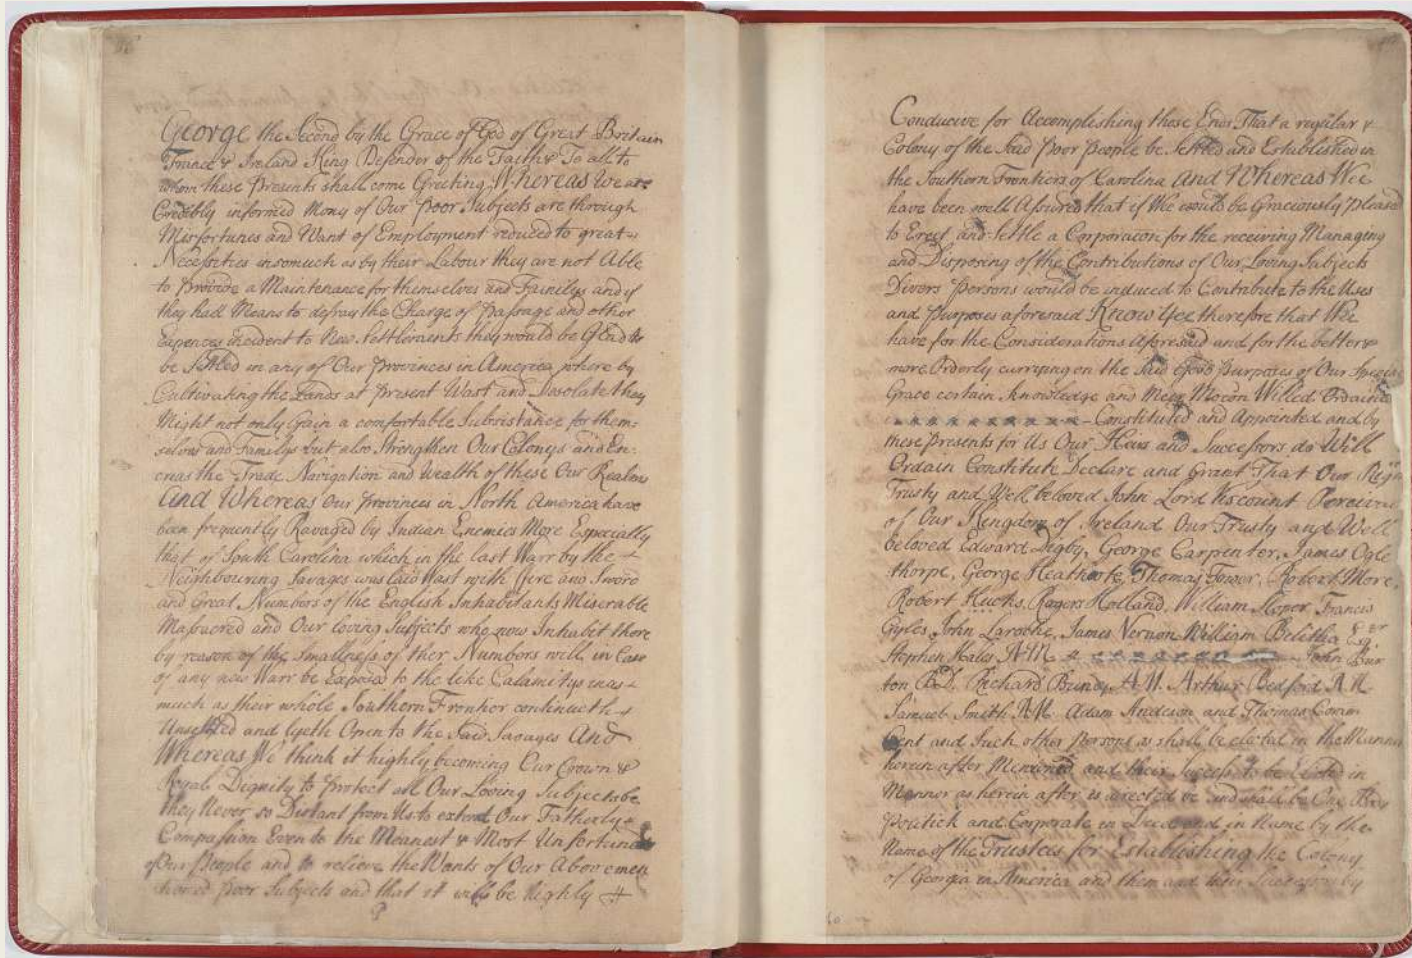 George the Second by the Grace of God of Great Britain
France & Ireland King Defender of the Faith & To all to
whom these Presents shall come Greeting Whereas We are
Credibly informed Many of Our Poor Subjects are through
Misfortunes and Want of Employment reduced to great
Necessities insomuch as by their Labour they are not Able
to Provide a Maintenance for themselves and Familys and if
they had Means to defray the Charge of Passage and other
Expences incident to New Settlements they would be Glad to
be Settled in any of Our Provinces in America where by
Cultivating the Lands at Present Wast and Desolate they
Might not only Gain a comfortable Subsistance for them=
selves and Familys but also Strengthen Our Colonys and En=
creas the Trade Navigation and Wealth of these Our Realms
And Whereas Our Provinces in North America have
been frequently Ravaged by Indian Enemies More Especially
that of South Carolina which in the last Warr by the
Neighbouring Savages was laid Wast with Fire and Sword
and Great Numbers of the English Inhabitants Miserable
Massacred and Our loving Subjects who now Inhabit there
by reason of the Smallness of ther Numbers will in Case
of any new Warr be Exposed to the like Calamitys inas
much as their whole Southern Frontier continueth
Unsettled and lyeth Open to the Said Savages And
Whereas We think it highly becoming Our Crown &
Royal Dignity to Protect all Our Loving Subjects be
they Never so Distant from Us to extend Our Fatherly
Compassion Even to the Meanest & Most Unfortunate
of Our People and to relieve the Wants of Our Abovemen
tioned poor Subjects and that it will be highly
Conducive for Accomplishing those Ends That a regular &
Colony of the Said Poor People be Settled and Established in
the Southern Frontiers of Carolina And Whereas We
have been well Assured that if We would be Graciously Pleased
to Erect and Settle a Corporacon for the receiving Managing
and Disposing of the Contributions of Our Loving Subjects
Divers Persons would be induced to Contribute to the Uses
and Purposes aforesaid Know Yee therefore that We
have for the Considerations Aforesaid and for the better &
more Orderly carrying on the Said Good Purposes of Our Special
Grace certain Knowledge and Meer Mocon Willed Ordained
Constituted and Appointed and by
these Presents for Us Our Heirs and Successors do Will
Ordain Constitute Declare and Grant That Our Right
Trusty and Well beloved John Lord Viscount Percival
of Our Kingdom of Ireland Our Trusty and Well
beloved Edward Digby, George Carpenter, James Ogle
thorpe, George Heathcote, Thomas Tower, Robert More,
Robert Hucks, Rogers Holland, William Sloper, Francis
Eyles John Laroche, James Vernon William Belitha Esqrs
Stephen Hales A.M. John Bur
ton B.D. Richard Bundy A.M. Arthur Bedford A.M.
Samuel Smith A.M. Adam Anderson and Thomas Coram
Gent and Such other Persons as shall be elected in the Manner
herein after Mentioned and their Successrs to be Elected in
Manner as herein after is directed be and shall be One Body
Politick and Corporate in Deed and in Name by the
Name of the Trustees for Establishing the Colony
of Georgia in America and them and their Successors by